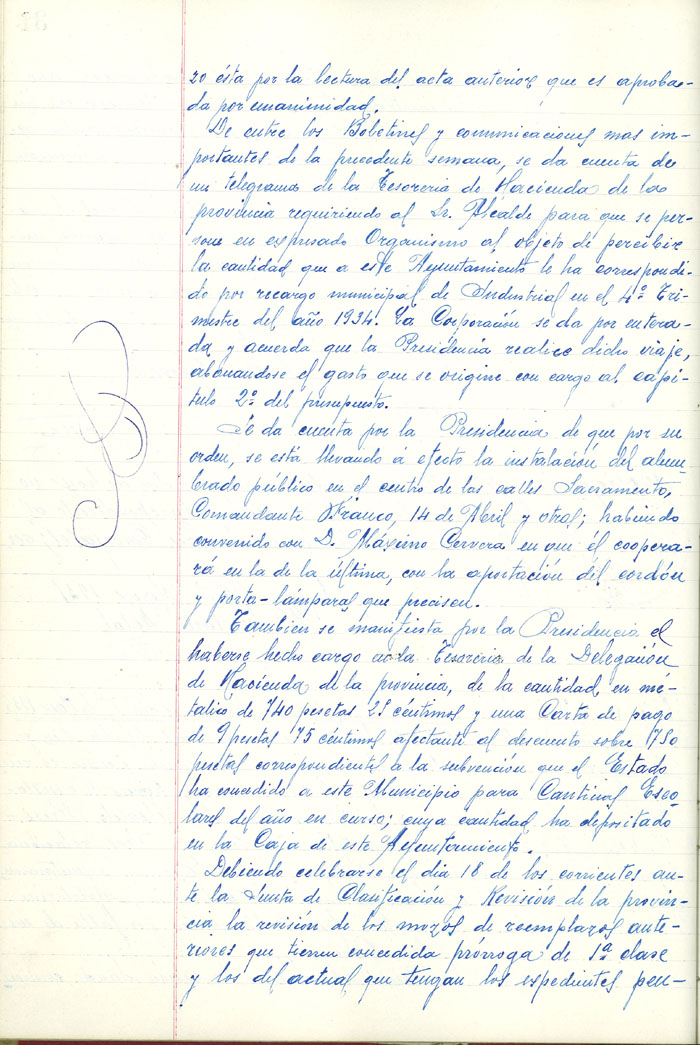 zo ésta por la lectura del acta anterior que es aproba-
da por unanimidad.
De entre los Boletines y comunicaciones mas im-
portantes de la precedente semana, se da cuenta de
un telegrama de la Tesoreria de Hacienda de la
provincia requiriendo al Sr. Alcalde para que se per-
sone en expresado Organismo al objeto de percibir
la cantidad que a este Ayuntamiento le ha correspondi-
do por recargo municipal de Industrial en el 4º Tri-
mestre del año 1934. La Corporación se da por entera-
da y acuerda que la Presidencia realice dicho viaje,
abonandose el gasto que se origine con cargo al capí-
tulo 2º del presupuesto.
Se da cuenta por la Presidencia de que por su
orden, se está llevando á efecto la instalación del alum-
brado público en el centro de las calles Sacramento,
Comandante Franco, 14 de Abril y otras; habiendo
convenido con D. Máximo Cervera en que él coopera-
rá en la de la última, con la aportación del cordón
y porta-lámparas que precisen.
Tambien se manifiesta por la Presidencia el
haberse hecho cargo de la Tesoreria de la Delegación
de Hacienda de la provincia, de la cantidad, en me-
talico de 740 pesetas 25 céntimos y una Carta de pago
de 9 pesetas 75 céntimos afectante al descuento sobre 750
pesetas correspondientes a la subvención que el Estado
ha concedido a este Municipio para Cantinas Esco-
lares del año en curso; cuya cantidad ha depositado
en la Caja de este Ayuntamiento.
Debiendo celebrarse el dia 18 de los corrientes an-
te la Junta de Clasificación y Revisión de la provin-
cia la revisión de los mozos de reemplazos ante-
riores que tienen concedida prórroga de 1ª clase
y los del actual que tengan los expedientes pen-